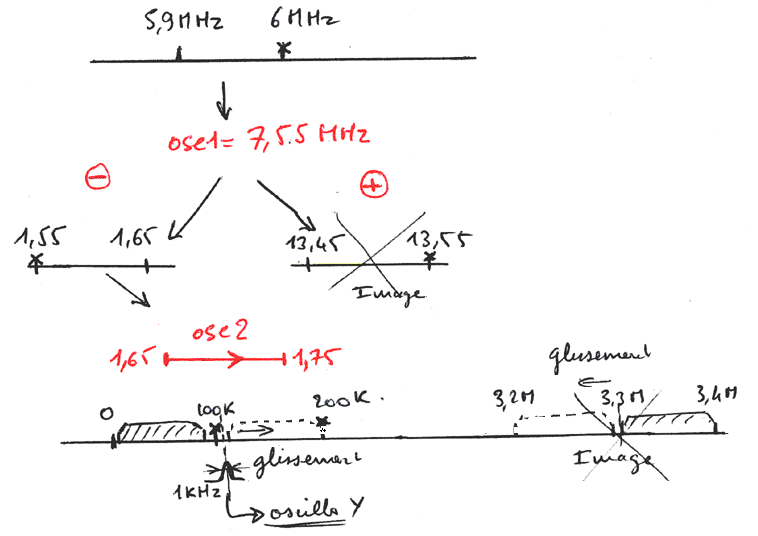 5,9MHz 6MHz
osc1= 7,55 MHz
- +
1,55 1,65 13,45 13,55
Image
osc2
1,65 1,75
glissement
0 100K 200K. 3,2M 3,3M 3,4M
glissement Image
1KHz
oscillo Y